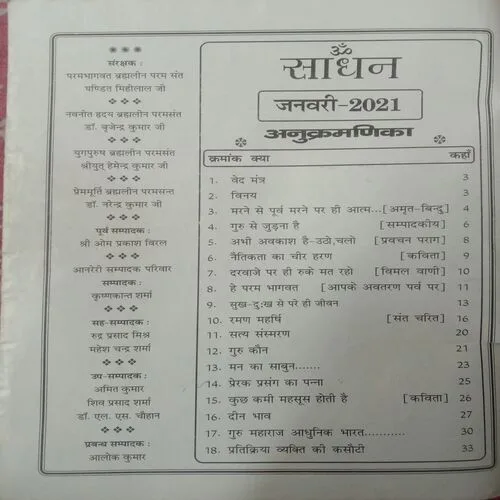 संरक्षक :
परमभागवत ब्रह्मलीन परम संत
पण्डित मिहीलाल जी
नवनीत हृदय ब्रह्मलीन परमसंत
डॉ. बृजेन्द्र कुमार जी
युगपुरुष ब्रह्मलीन परमसंत
श्रीयुत् हेमेन्द्र कुमार जी
प्रेममूर्ति ब्रह्मलीन परमसन्त
डॉ. नरेन्द्र कुमार जी
पूर्व सम्पादक :
श्री ओम प्रकाश विरल
आनरेरी सम्पादक परिवार
सम्पादक :
कृष्णकान्त शर्मा
सह-सम्पादक :
रुद्र प्रसाद मिश्र
महेश चन्द्र शर्मा
उप-सम्पादक :
अमित कुमार
शिव प्रसाद शर्मा
डॉ. एल. एस. चौहान
प्रबन्ध सम्पादक :
आलोक कुमार
ॐ
साधन
जनवरी-2021
अनुक्रमणिका
क्रमांक क्या कहाँ
1. वेद मंत्र 3
2. विनय 3
3. मरने से पूर्व मरने पर ही आत्म...[अमृत-बिन्दु] 4
4. गुरु से जुड़ना है [सम्पादकीय] 6
5. अभी अवकाश है-उठो,चलो [प्रवचन पराग] 8
6. नैतिकता का चीर हरण [कविता] 9
7. दरवाजे पर ही रुके मत रहो [विमल वाणी] 10
8. हे परम भागवत [आपके अवतरण पर्व पर] 11
9. सुख-दुःख से परे ही जीवन 13
10. रमण महर्षि [संत चरित] 16
11. सत्य संस्मरण 20
12. गुरु कौन 21
13. मन का साबुन....... 23
14. प्रेरक प्रसंग का पन्ना 25
15. कुछ कमी महसूस होती है [कविता] 26
16. दीन भाव 27
17. गुरु महाराज आधुनिक भारत........... 30
18. प्रतिक्रिया व्यक्ति की कसौटी 33